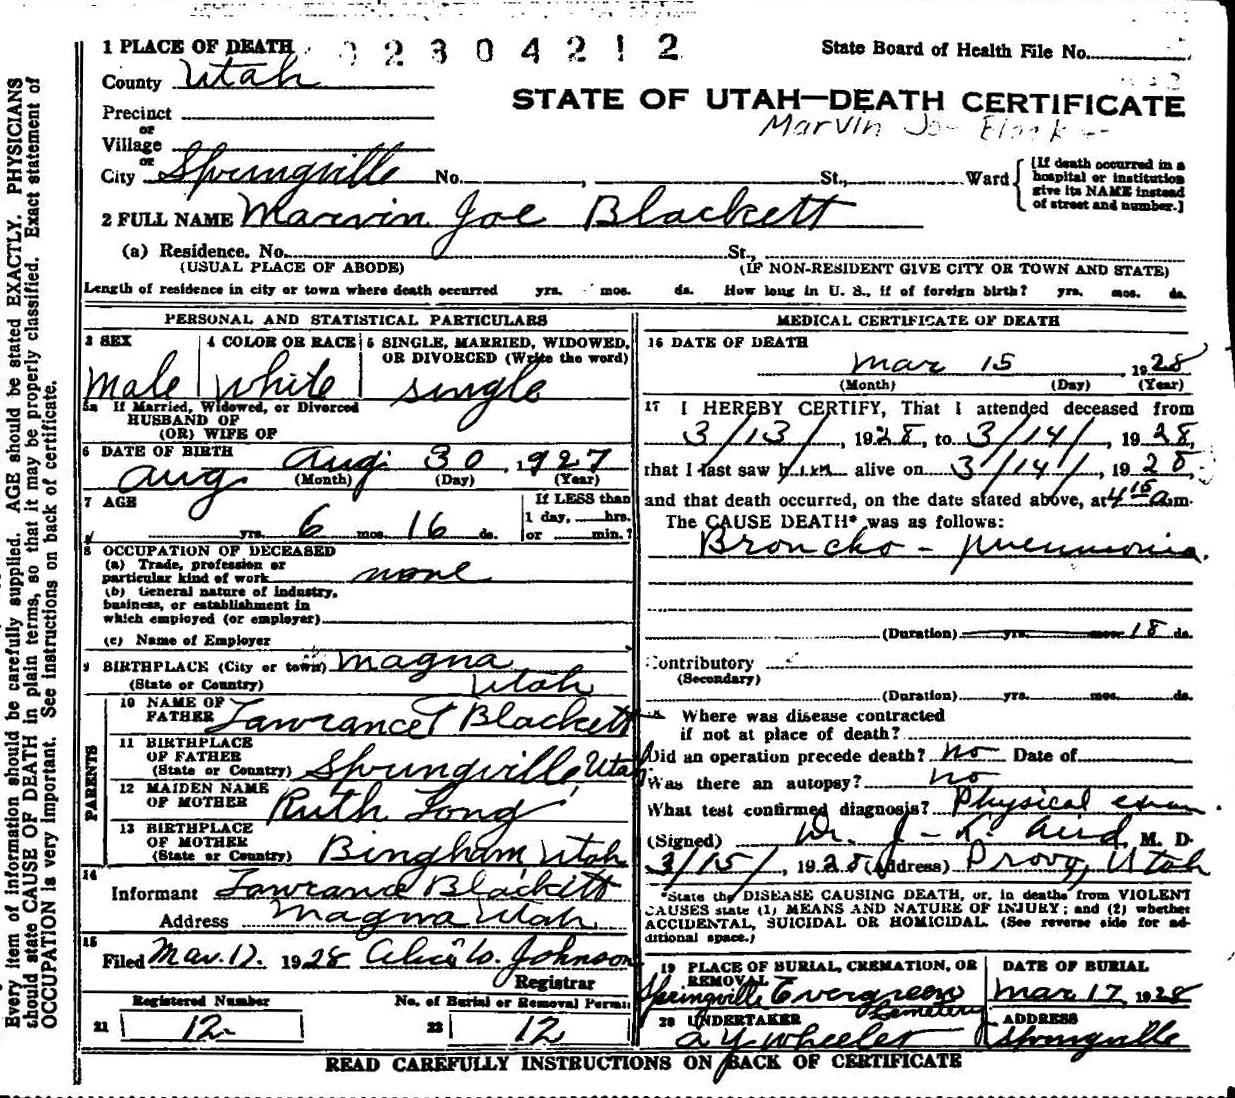 1 PLACE OF DEATH 02304212 State Board of Health File No.
County Utah
STATE OF UTAH—DEATH CERTIFICATE
Precinct
Marvin Joe
or
Village
or
City Springville No. , St., Ward {[If death occurred in a hospital or institution give its NAME instead of street and number.]
2 FULL NAME Marvin Joe Blackett
(a) Residence. No. St.,
(USUAL PLACE OF ABODE) (IF NON-RESIDENT GIVE CITY OR TOWN AND STATE)
Length of residence in city or town where death occurred yrs. mos. ds. How long in U. S., if of foreign birth? yrs. mos. ds.
PERSONAL AND STATISTICAL PARTICULARS
3 SEX
Male
4 COLOR OR RACE
White
5 SINGLE, MARRIED, WIDOWED, OR DIVORCED (Write the word)
single
5a If Married, Widowed, or Divorced
HUSBAND OF
(OR) WIFE OF
6 DATE OF BIRTH
Aug. Aug. 30, 1927
(Month) (Day) (Year)
7 AGE
yrs. 6 mos. 16 ds.
If LESS than
1 day, hrs.
or min.?
8 OCCUPATION OF DECEASED
(a) Trade, profession or
particular kind of work none
(b) General nature of industry,
business, or establishment in
which employed (or employer)
(c) Name of Employer
9 BIRTHPLACE (City or town) Magna
(State or Country) Utah
PARENTS
10 NAME OF
FATHER Lawrance T Blackett
11 BIRTHPLACE
OF FATHER
(State or Country) Springville, Utah
12 MAIDEN NAME
OF MOTHER Ruth Long
13 BIRTHPLACE
OF MOTHER
(State or Country) Bingham Utah
14
Informant Lawrance Blackett
Address Magna Utah
15
Filed Mar. 17. 1928 Alice W. Johnson
Registrar
Registered Number No. of Burial or Removal Permit
21 12 22 12
MEDICAL CERTIFICATE OF DEATH
16 DATE OF DEATH
Mar 15, 1928
(Month) (Day) (Year)
17 I HEREBY CERTIFY, That I attended deceased from
3/13/, 1928, to 3/14/, 1928,
that I last saw him alive on 3/14/, 1928,
and that death occurred, on the date stated above, at 4 15 a.m.
The CAUSE DEATH* was as follows:
Broncho - pneumonia.
(Duration) yrs. mos. 18 ds.
Contributory
(Secondary)
(Duration) yrs. mos. ds.
Where was disease contracted
if not at place of death?
Did an operation precede death? no Date of
Was there an autopsy? no
What test confirmed diagnosis? Physical exam.
(Signed) Dr. J - K. Aird, M. D.
3/15/, 1928 (Address) Provo, Utah
*State the DISEASE CAUSING DEATH, or, in deaths from VIOLENT
CAUSES state (1) MEANS AND NATURE OF INJURY; and (2) whether
ACCIDENTAL, SUICIDAL OR HOMICIDAL. (See reverse side for ad-
ditional space.)
19 PLACE OF BURIAL, CREMATION, OR
REMOVAL
Springville Evergreen
Cemetery
DATE OF BURIAL
Mar 17 1928
20 UNDERTAKER
A Y Wheeler
ADDRESS
Springville
READ CAREFULLY INSTRUCTIONS ON BACK OF CERTIFICATE
Every item of information should be carefully supplied. AGE should be stated EXACTLY. PHYSICIANS
should state CAUSE OF DEATH in plain terms, so that it may be properly classified. Exact statement of
OCCUPATION is very important. See instructions on back of certificate.